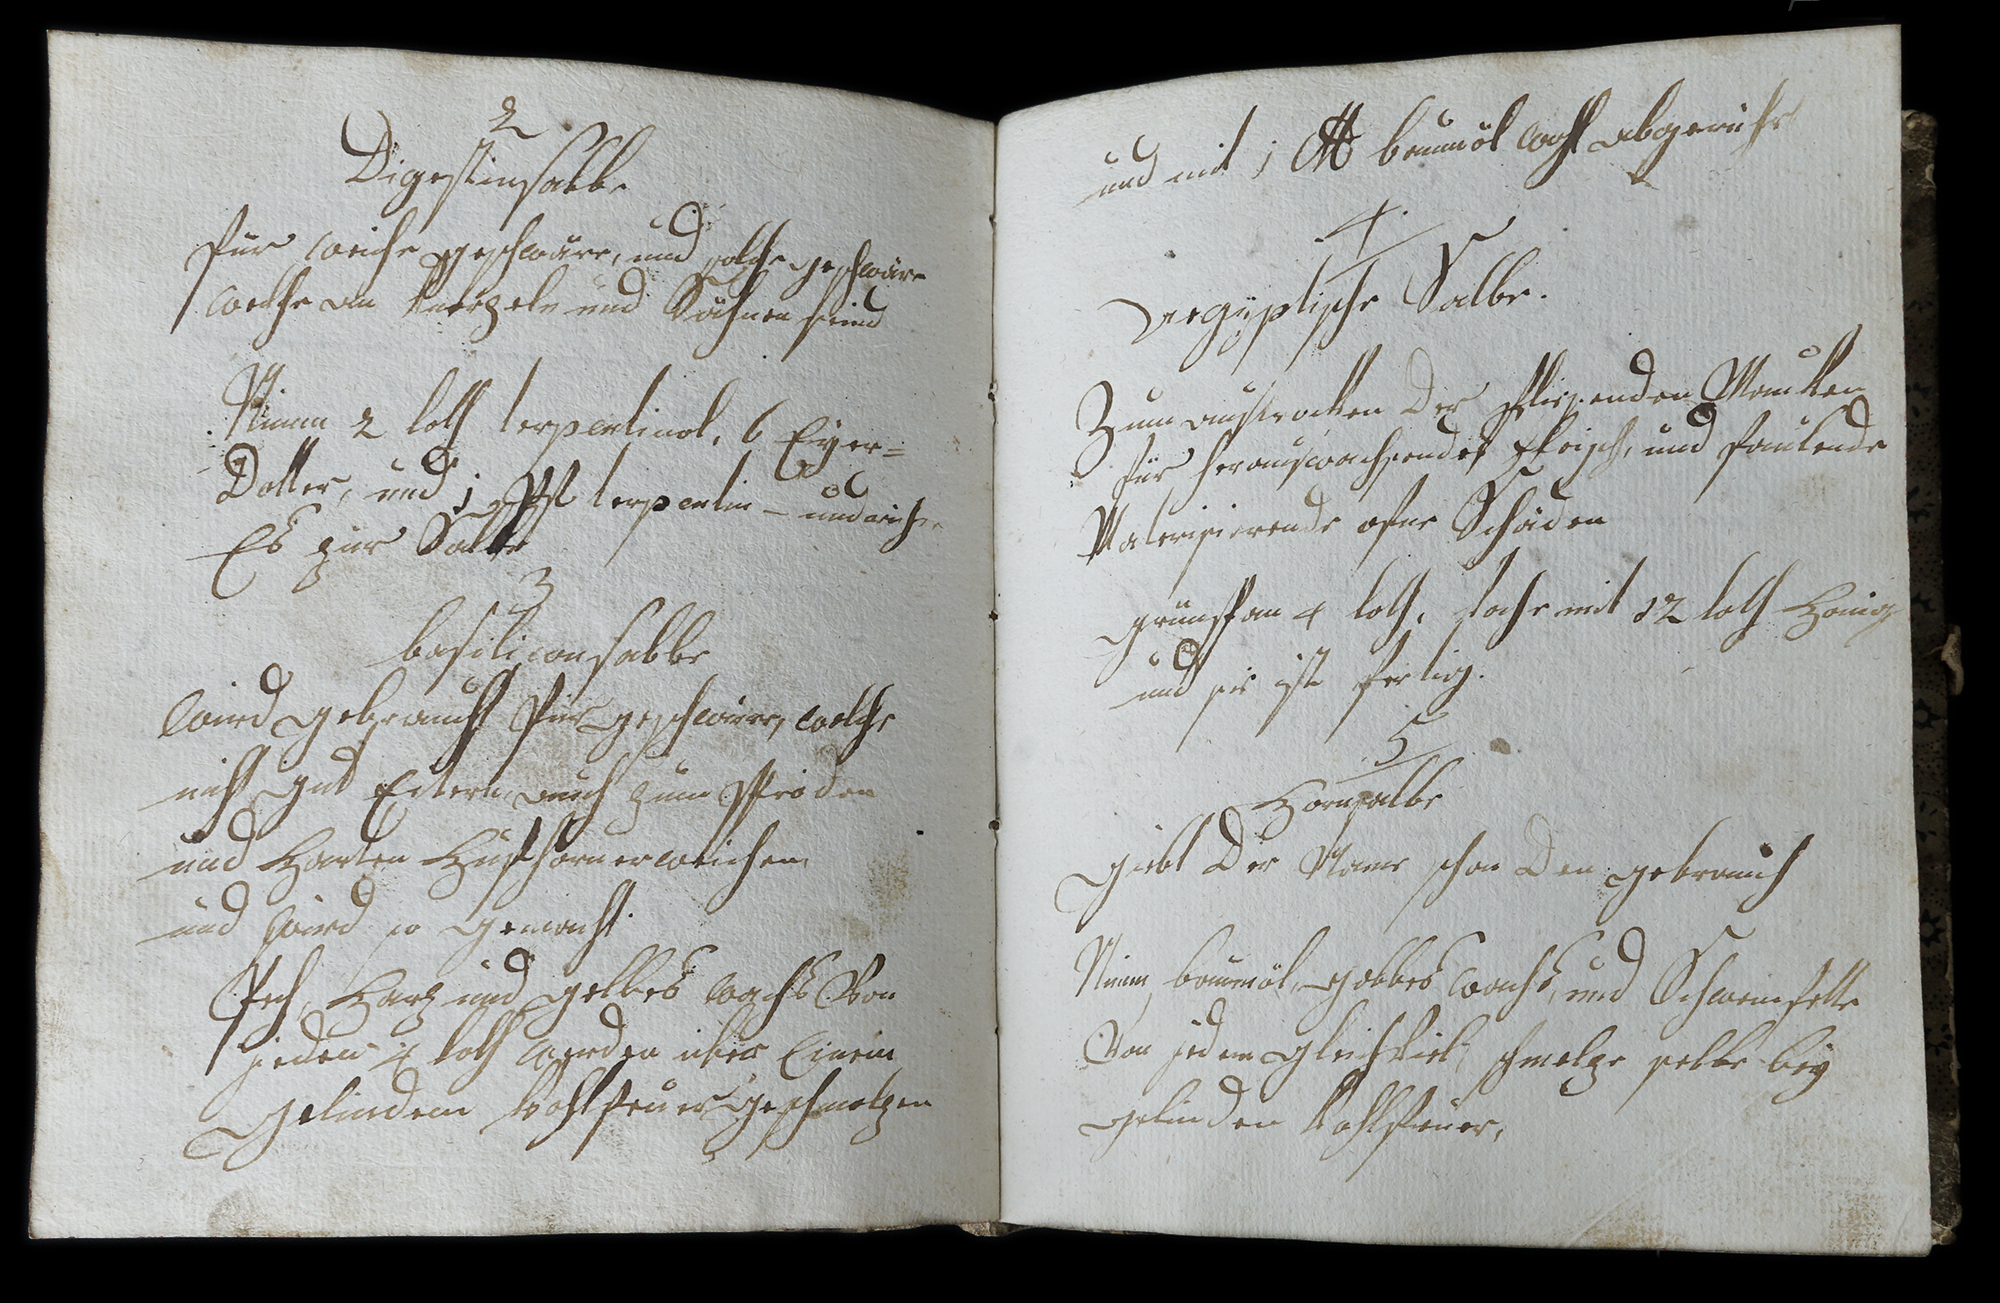 2
Digestivsalbe
für weiche geschwüre, und solche geschwüre
welche an Knorpeln und Sähnen sind
Nimm 2 loth terpentinöl, 6 Eyer=
Dotter, und 1 terpentin – und
Es zur Salbe
3
basiliconsalbe
Wird gebraucht für geschwüre, welche
nicht gut Eitern, auch zum
und Harten Hufhörner weichen
und wird so gemacht
Pech, Harz und gelbes wachs von
jeden 4 loth werden über Einem
gelindem Kohlfeuer geschmolzen
und mit 1 ℔ baumöl wohl abgerührt
4
Aegyptische Salbe.
Zum austrocknen der fliesenden Maucken
für herauswachsendes fleisch, und faulende
Materisierende ofne Schäden
grünspan 4 loth, koche mit 12 loth Honig
und sie ist fertig.
5
Hornsalbe
giebt der Name schon den gebrauch
Nimm baumöl, gelbes wachs, und Schweinfette
von jedem gleichviel, schmelze selbe bey
gelinden Kohlfeuer,